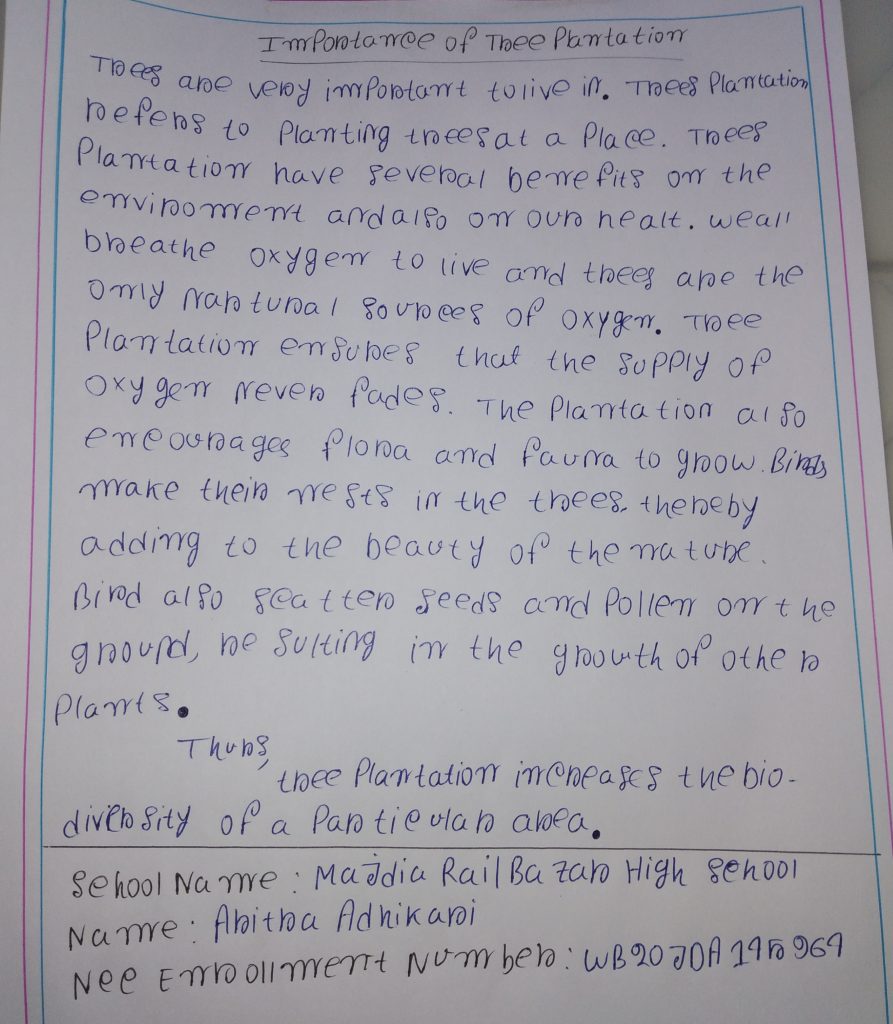 Importance of Tree Plantation
Trees are very important to live in. Trees Plantation
refers to Planting trees at a Place. Trees
Plantation have several benefits on the
environment and also on our healt. we all
breathe oxygen to live and trees are the
only nartural sources of oxygen. Tree
Plantation ensures that the supply of
oxygen never fades. The Plantation also
encourages flora and fauna to grow. Birds
make their nests in the trees. thereby
adding to the beauty of the nature.
Bird also scatter seeds and Pollen on the
ground, resulting in the growth of other
Plants.
Thurs,
tree Plantation increases the bio-
diversity of a Particular area.
School Name: Majdia Rail Bazar High School
Name: Aritra Adhikari
Ncc Enrollment Number: